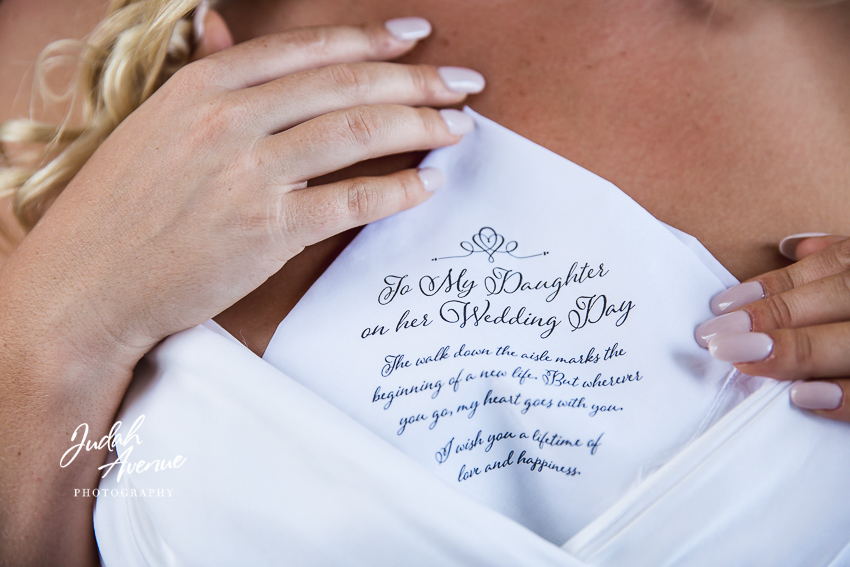 To My Daughter
on her Wedding Day
The walk down the aisle marks the
beginning of a new life. But wherever
you go, my heart goes with you.
I wish you a lifetime of
love and happiness.
Judah
Avenue
PHOTOGRAPHY